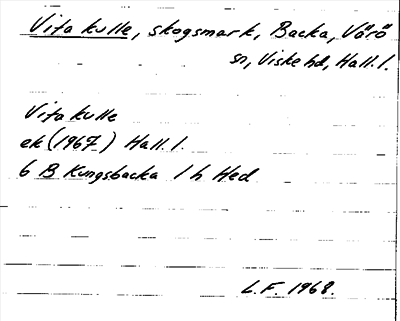 Vita kulle, skogsmark, Backa, Värö
sn, Viske hd, Hall. l.
Vita kulle
ek (1967) Hall. l.
6 B Kungsbacka 1 h Hed
L.F. 1968.